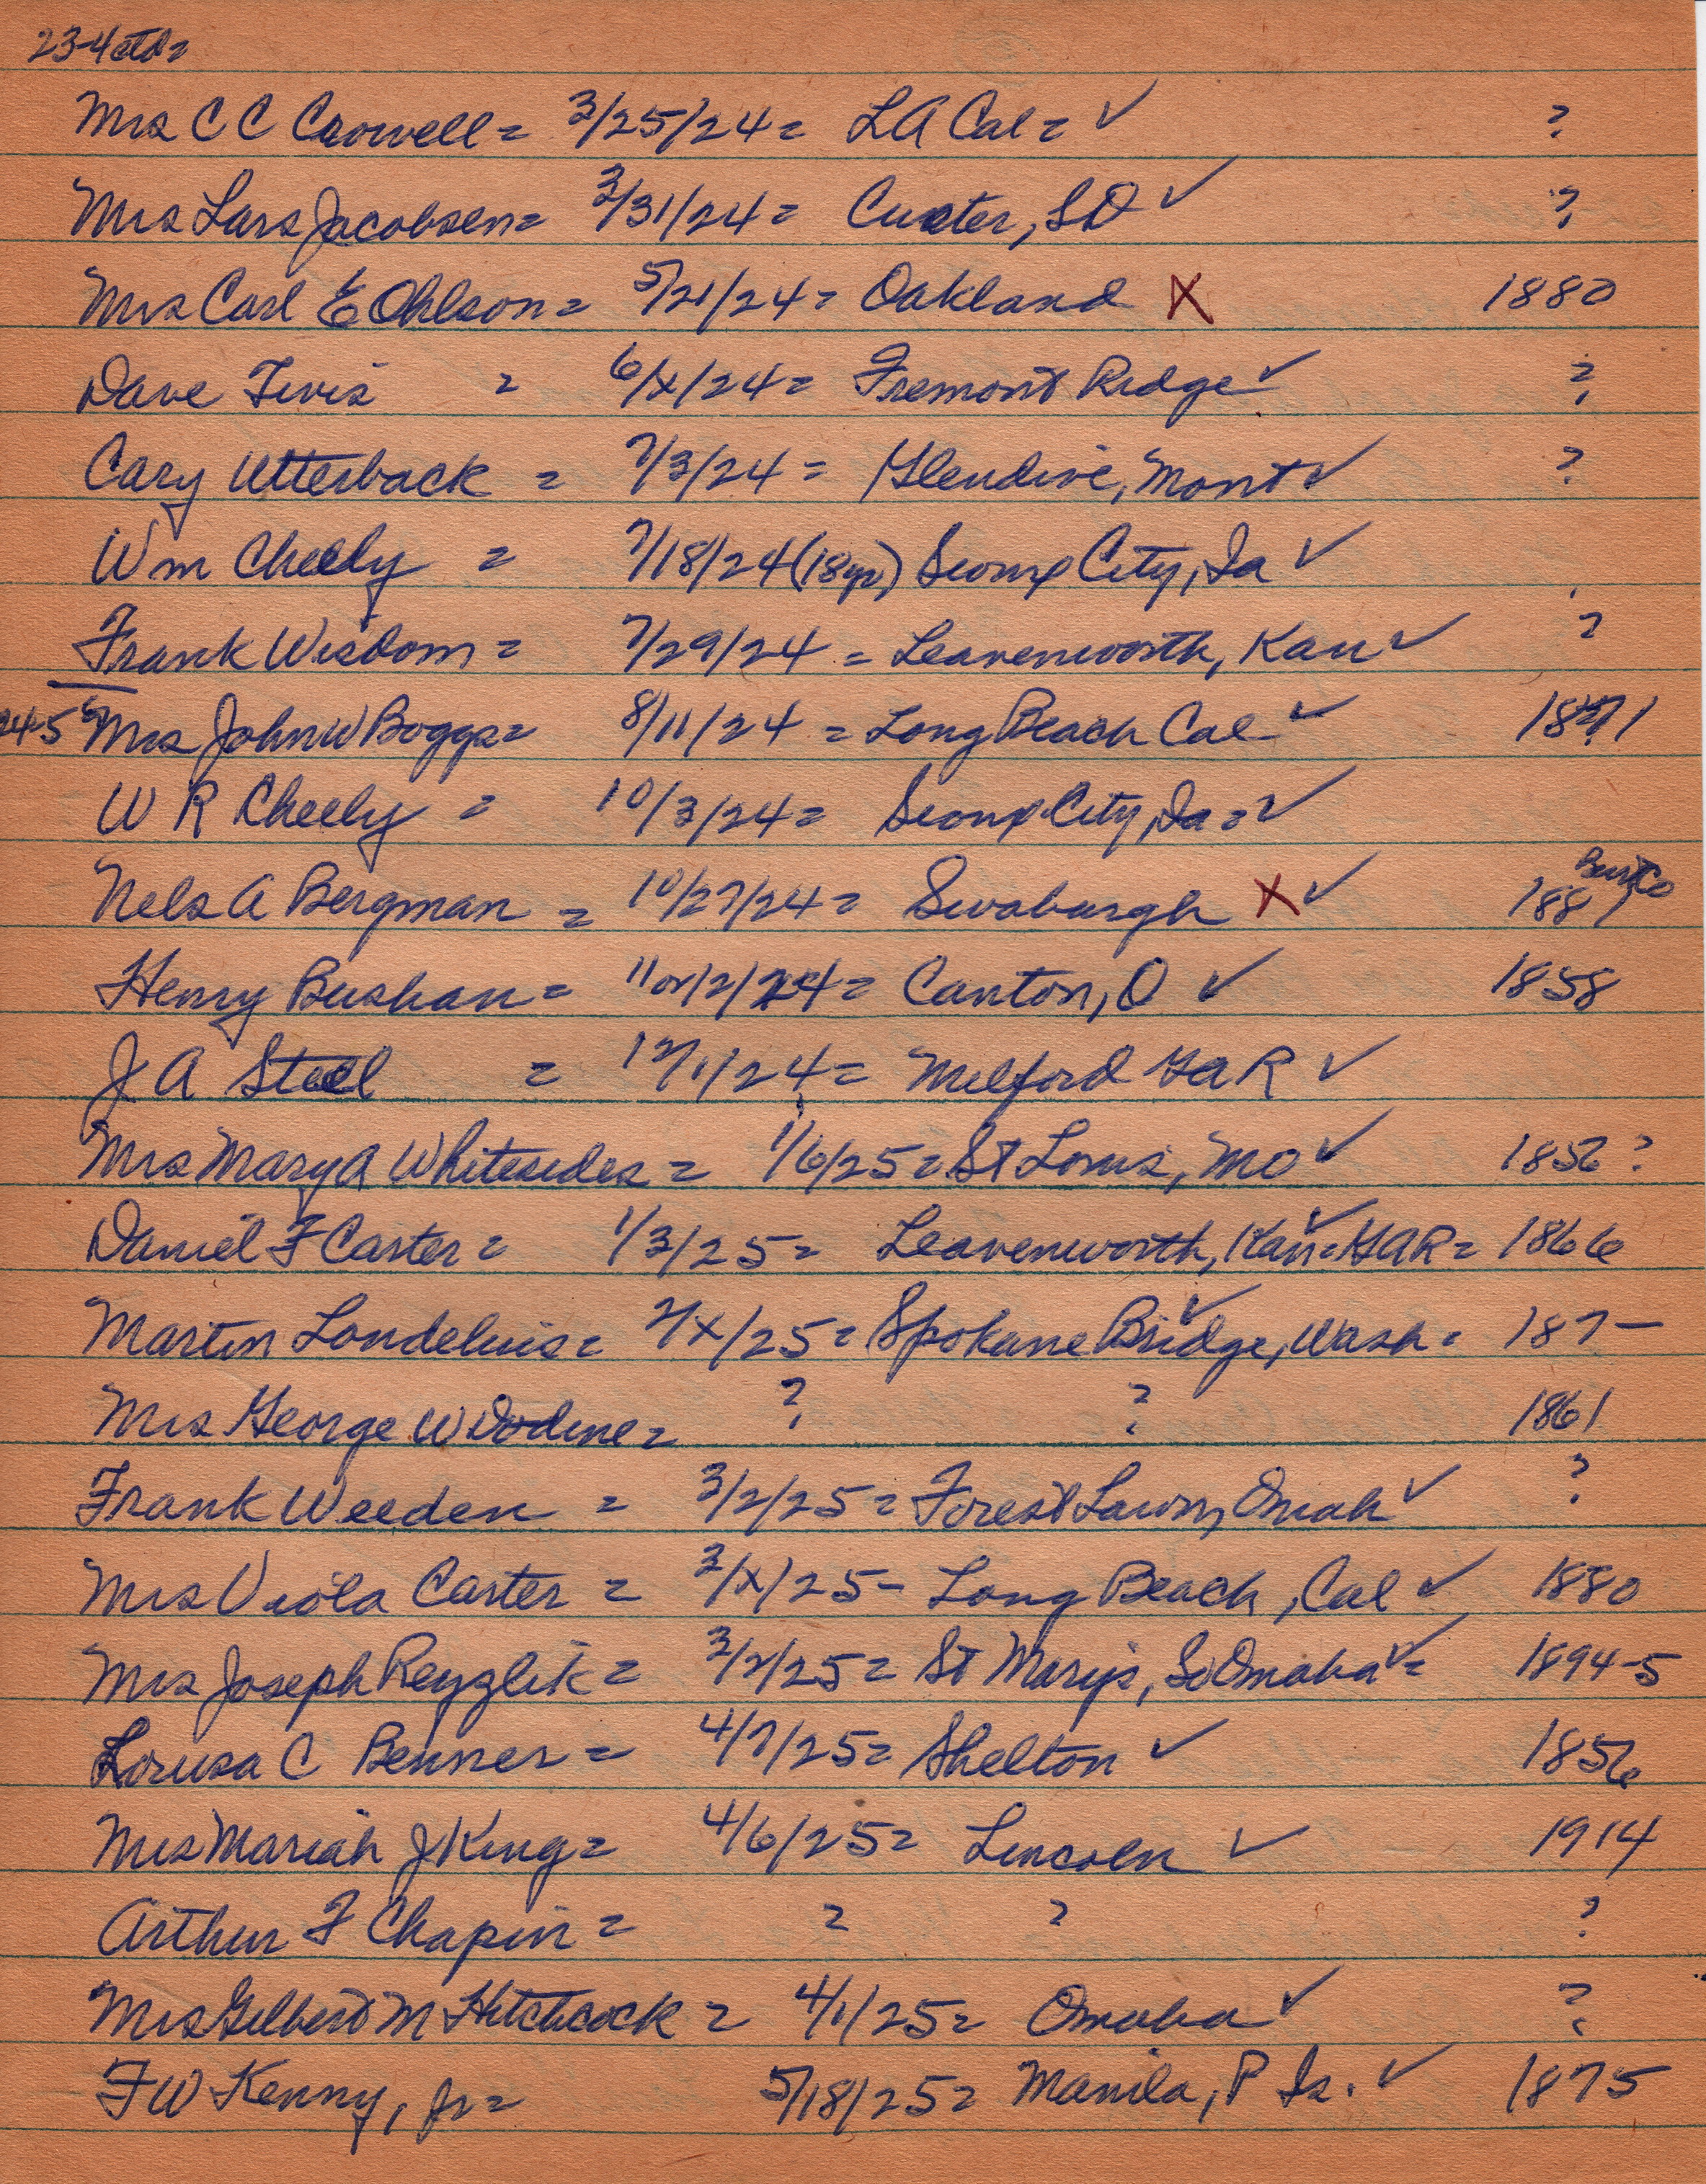 23-4 ctd=
Mrs C C Crowell = 3/25/24 = LA Cal = ✓ ?
Mrs Lars Jacobsen = 3/31/24 = Custer, SD ✓ ?
Mrs Carl E Ohlson = 5/21/24 = Oakland X 1880
Dave Tivis = 6/X/24 = Fremont Ridge ✓ ?
Cary Utterback = 7/3/24 = Glendive, Mont ✓ ?
Wm Cheely = 7/18/24 (18yr) Sioux City, Ia ✓
Frank Wisdom = 7/29/24 = Leavenworth, Kan ✓ ?
24-5 Mrs John W Boggs = 8/11/24 = Long Beach Cal ✓ 1871
W R Cheely = 10/3/24 = Sioux City, Ia = ✓
Nels A Bergman = 10/27/24 = Swaburgh X ✓ 1887 Burt Co
Henry Bushan = 11 or 12/24 = Canton, O ✓ 1858
J A Steel = 12/1/24 = Milford GAR ✓
Mrs Mary A Whitesides = 1/6/25 = St Louis, Mo ✓ 1856 ?
Daniel F Carter = 1/3/25 = Leavenworth, Kan = GAR = ✓ 1866
Martin Londelius = 2/X/25 = Spokane Bridge, Wash = ✓ 187–
Mrs George W = ? ? 1861
Frank Weeden = 3/2/25 = Forest Lawn, Omah ✓ ?
Mrs Viola Carter = 3/X/25 – Long Beach, Cal ✓ 1880
Mrs Joseph Reyzlik = 3/2/25 = St Mary's, So Omaha ✓ = 1894-5
Louisa C Benner = 4/7/25 = Shelton ✓ 1856
Mrs Mariah J King = 4/6/25 = Lincoln ✓ 1914
Arthur F Chapin = ? ? ?
Mrs Gilbert M Hitchcock = 4/1/25 = Omaha ✓ ?
F W Kenny, Jr = 5/18/25 = Manila, P Is. ✓ 1875